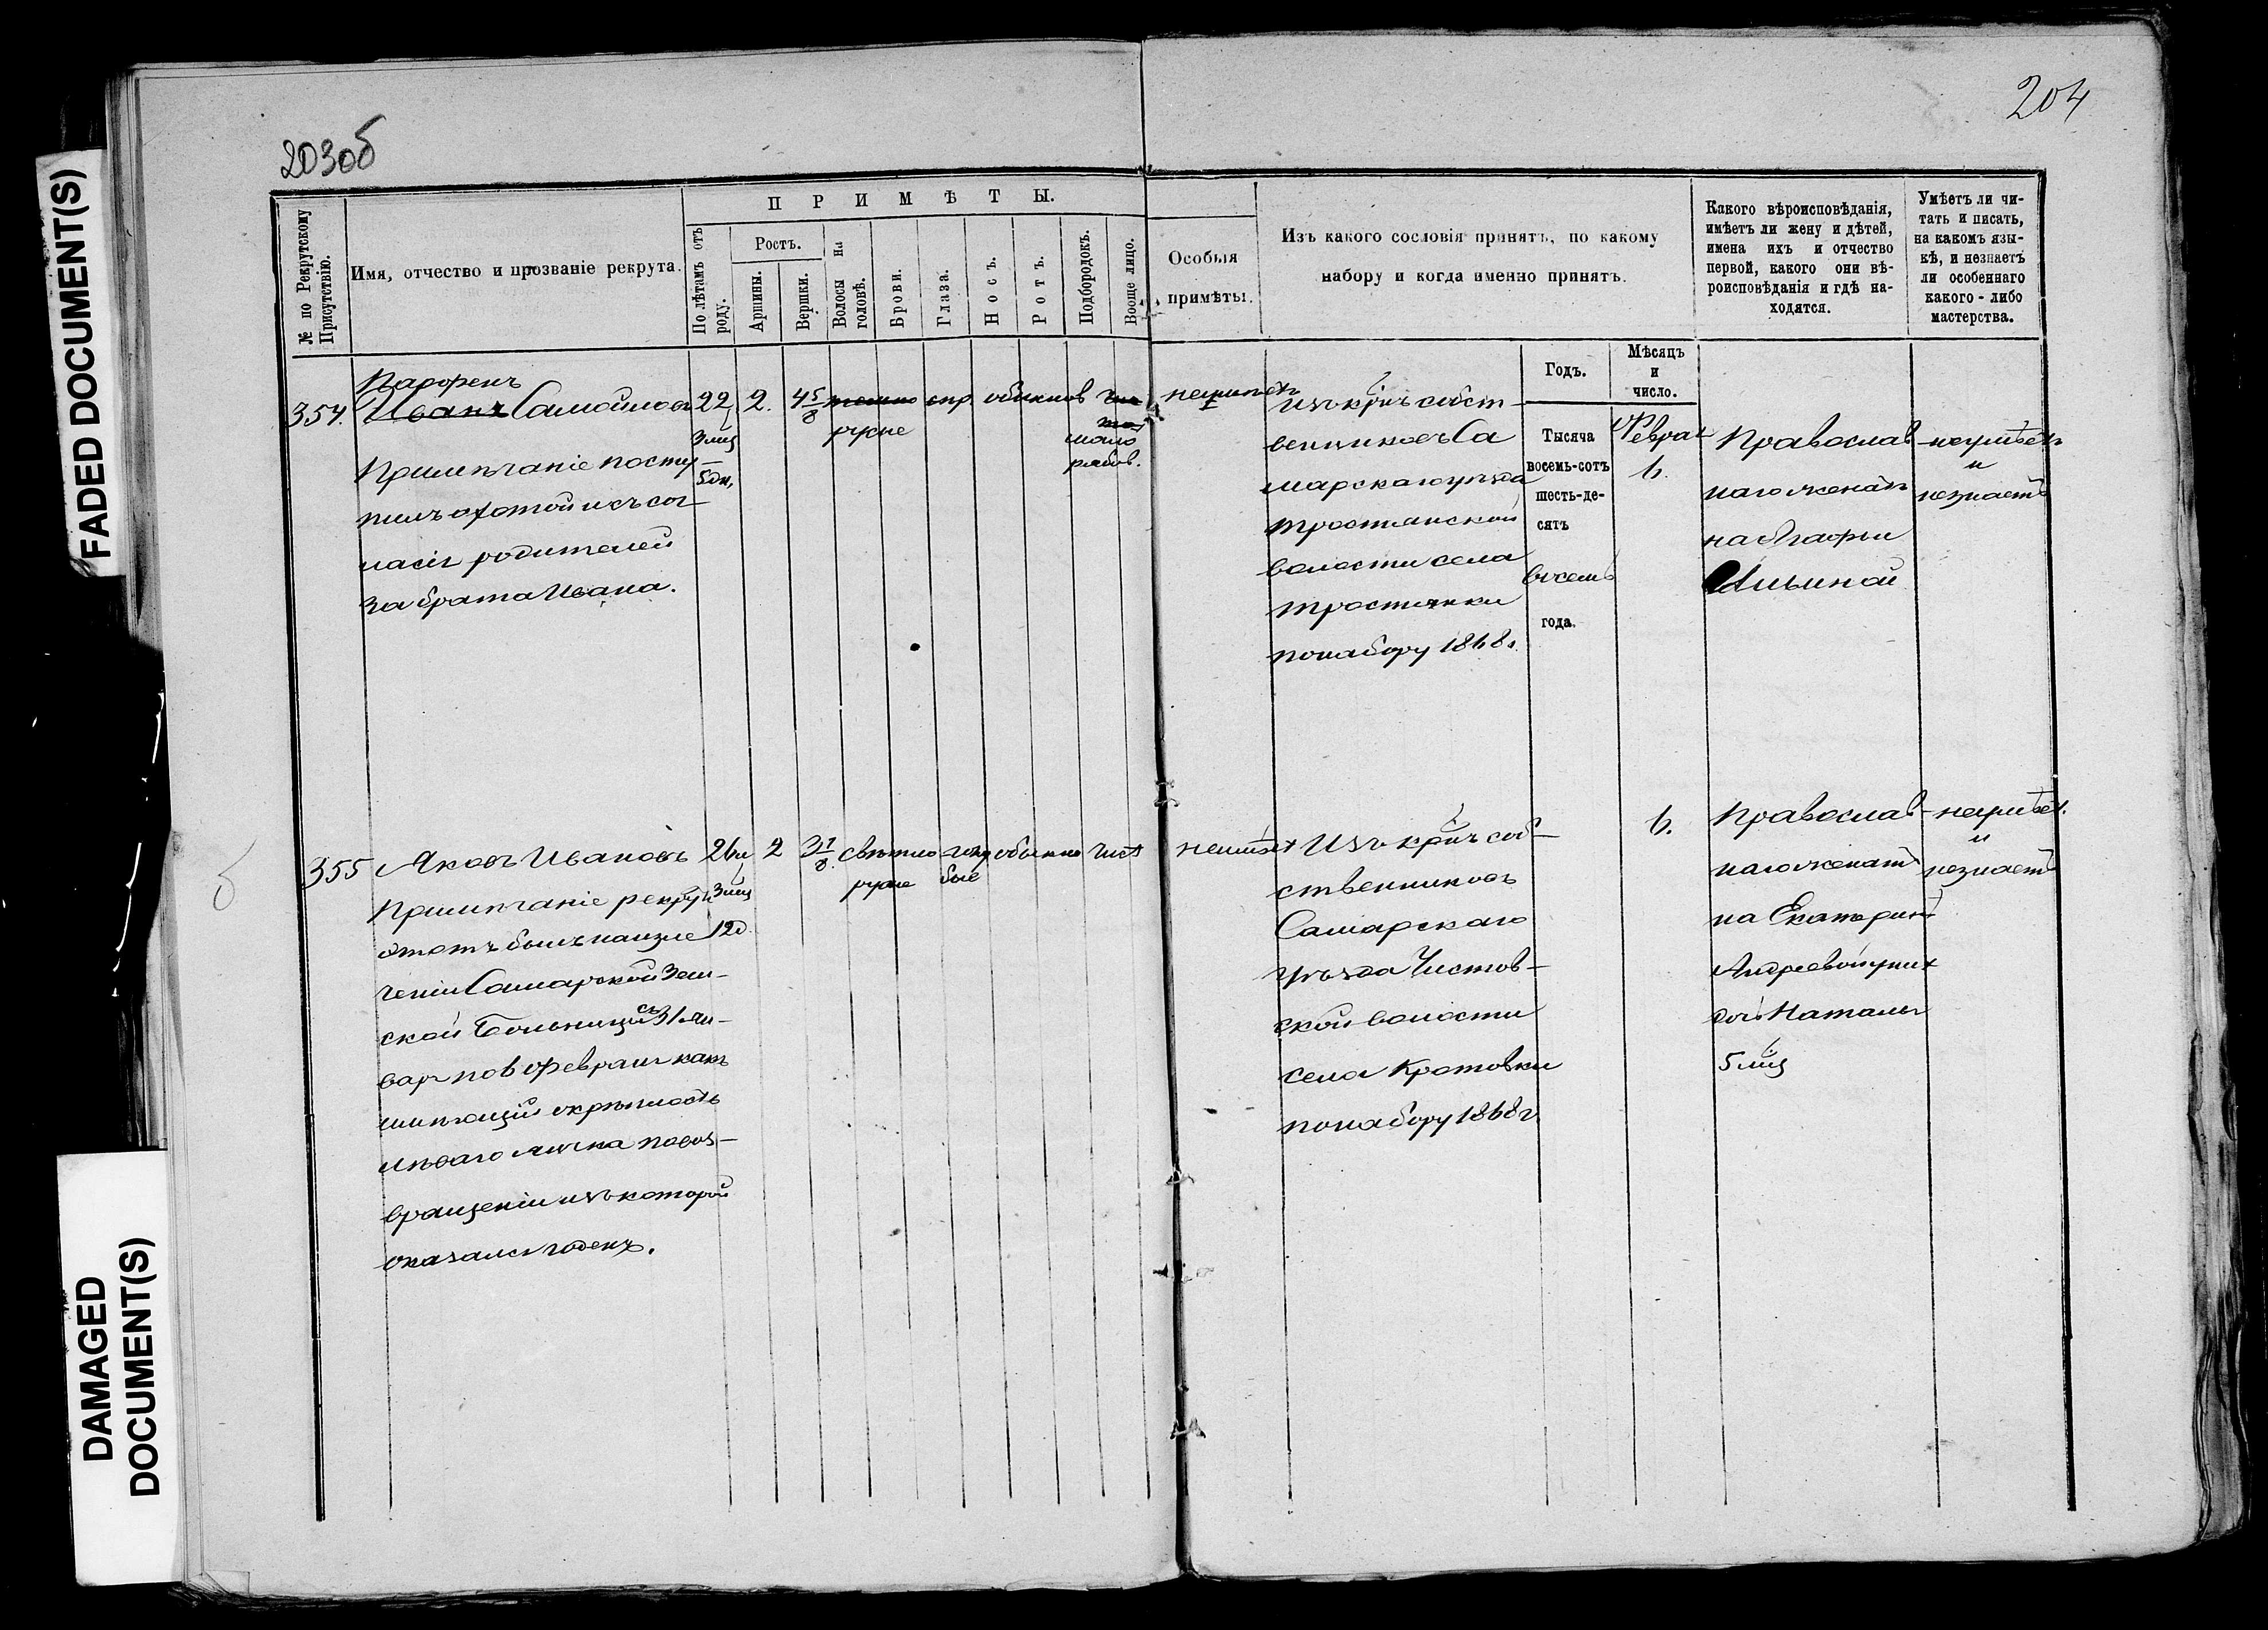 FADED DOCUMENT(S)
DAMAGED
DOCUMENT(S)
203об
204
№ по Рекрутскому
Присутствію.
Имя, отчество и прозваніе рекрута.
ПРИМѢТЫ.
По лѣтамъ отъ
роду.
Ростъ.
Аршины.
Вершки.
Волосы на
головѣ.
Брови.
Глаза.
Носъ.
Ротъ.
Подбородокъ.
Вооще лицо.
Особыя
примѣты.
Изъ какого сословія принятъ, по какому
набору и когда именно принятъ.
Какого вѣроисповѣданія,
имѣетъ ли жену и дѣтей,
имена ихъ и отчество
первой, какого они вѣ-
роисповѣданія и гдѣ на-
ходятся.
Умѣетъ ли чи-
тать и писать,
на какомъ язы-
кѣ, и незнаетъ
ли особеннаго
какого - либо
мастерства.
Годъ.
Мѣсяцъ
и
число.
Тысяча
восемь-сотъ
шесть-де-
сятъ
восемь
года.
354.
Парфенъ
Иванъ Самойлов
Примѣчаніе посту-
пилъ охотой и съ сог
ласія родителей
за брата Ивана.
22
3 мц
5 дн.
2.
4 5/8
темно сѣр. обыкнов чис
русые
тое
мало
рябов.
неимѣет
изъ крнъ собст-
венниковъ Са
марскаго уѣзда
Тростянской
волости села
Тростянки
по набору 1868г.
Феврал
6.
Православ-
наго женатъ
на Агафьи
Ильиной
неумѣетъ
и
незнаетъ
355
Яковъ Ивановъ
Примѣчаніе рекрутъ
этотъ былъ на излѣ
ченіи Самарской Зем-
ской Больницѣ съ 31 Ян-
варя по 6 февраля какъ
имѣющій окрѣплость
лѣваго яичка по воз-
вращеніи изъ которой
оказался годенъ.
26 л
3 мц
12 д.
2
3 1/8
свѣтло голу обыкно чист
русые бые
неимѣет
Изъ крнъ соб-
ственниковъ
Самарскаго
уѣзда Чистов-
ской волости
села Кротовки
по набору 1868г.
6.
Православ-
наго женатъ
на Екатерин
Андреевой у них
дочь Наталья
5 мц
неумѣет.
и
незнаетъ